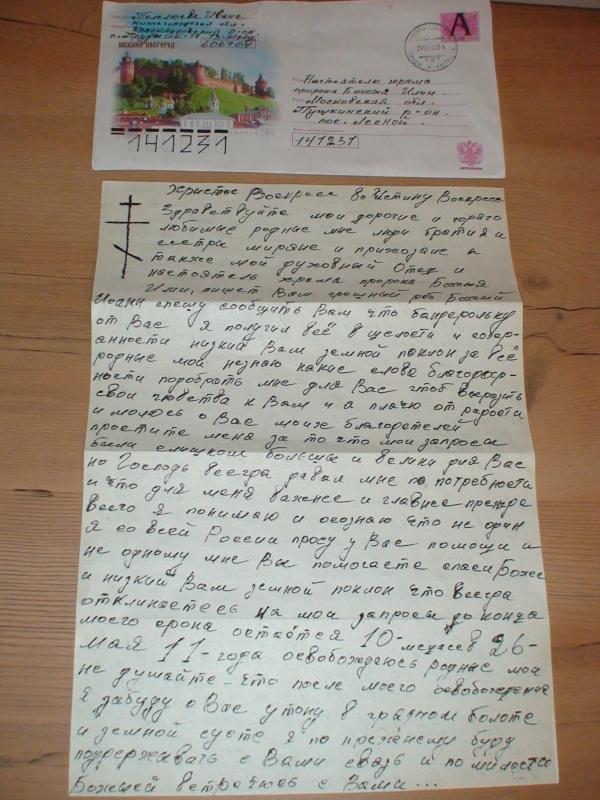 Телелюева Ивана
Нижегородская обл.
р-он.
606707
НИЖНИЙ НОВГОРОД
A
141231
Настоятелю храма
пророка Божья Илии.
Московская обл.
Пушкинский р-он.
пос. Лесной.
141231
ПОЧТА РОССИИ
Христос Воскресе во Истину Воскресе
Здравствуйте мои дорогие и горячо
любимые родные мне люди братия и
сестры миряне и прихожане а
также мой духовный Отец и
настоятель храма пророка Божья
Илии, пишет Вам грешный раб Божий
Иоанн спешу сообщить Вам что бандерольку
от Вас я получил всё в целости и сохр-
анности низкий Вам земной поклон за всё
родные мои незнаю какие слова благодар-
ности подобрать мне для Вас чтоб выразить
свои чювства к Вам и а плачю от радости
и молюсь о Вас моих благодетелей
простите меня за то что мои запросы
были слишком большые и велики для Вас
но Господь всегда давал мне по потребности
и что для меня важнее и главнее прежде
всего я понимаю и осознаю что не один
я со всей России прошу у Вас помощи и
не одному мне Вы помогаете спаси Боже
и низкий Вам земной поклон что всегда
откликаетесь на мои запросы до конца
моего срока остаётся 10-месясев 26-
мая 11-года освобождаюсь родные мои
не думайте-что после моего освобождения
я забуду о Вас утону в грязном болоте
и земной суете я по прежнему буду
поддерживать с Вами связь и по милости
Божией встречюсь с Вами...